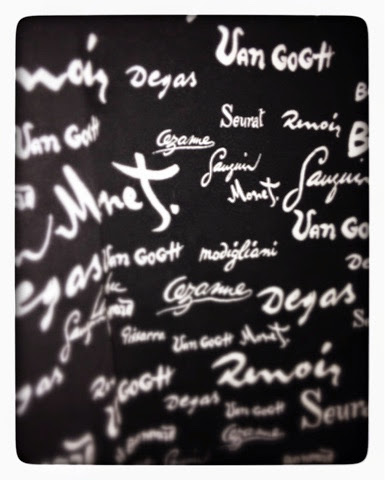 Van Gogh
Degas
Seurat
Renoir
Van Gogh
Cezanne
Gauguin
Gauguin
Monet.
Mnet.
Van Gogh
Van Gogh
modigliani
Cezanne
Degas
Degas
Pissarro
Van Gogh
Monet.
Renoir
Degas
Van Gogh
Seurat
Cezanne